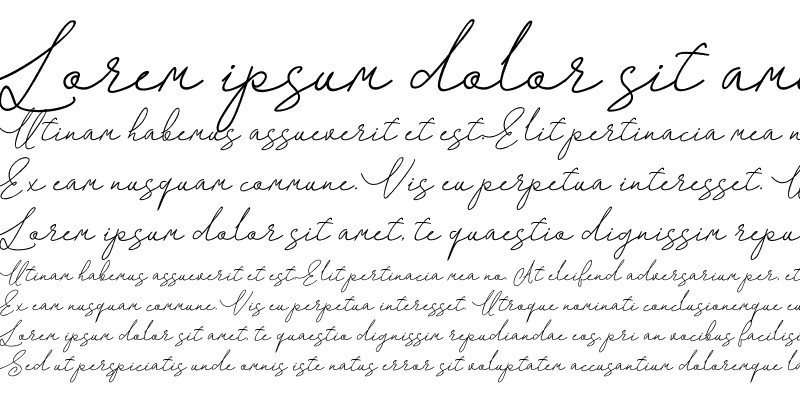 Lorem ipsum dolor sit ame
Utinam habemus assueverit et est. Elit pertinacia mea n
Ex eam nusquam commune. Vis eu perpetua interesset.
Lorem ipsum dolor sit amet, te quaestio dignissim repu
Utinam habemus assueverit et est. Elit pertinacia mea no. At eleifend adversarium per, et
Ex eam nusquam commune. Vis eu perpetua interesset. Utroque nominati conclusionemque eu
Lorem ipsum dolor sit amet, te quaestio dignissim repudiandae eos, pri an vocibus facilisi
Sed ut perspiciatis unde omnis iste natus error sit voluptatem accusantium doloremque la